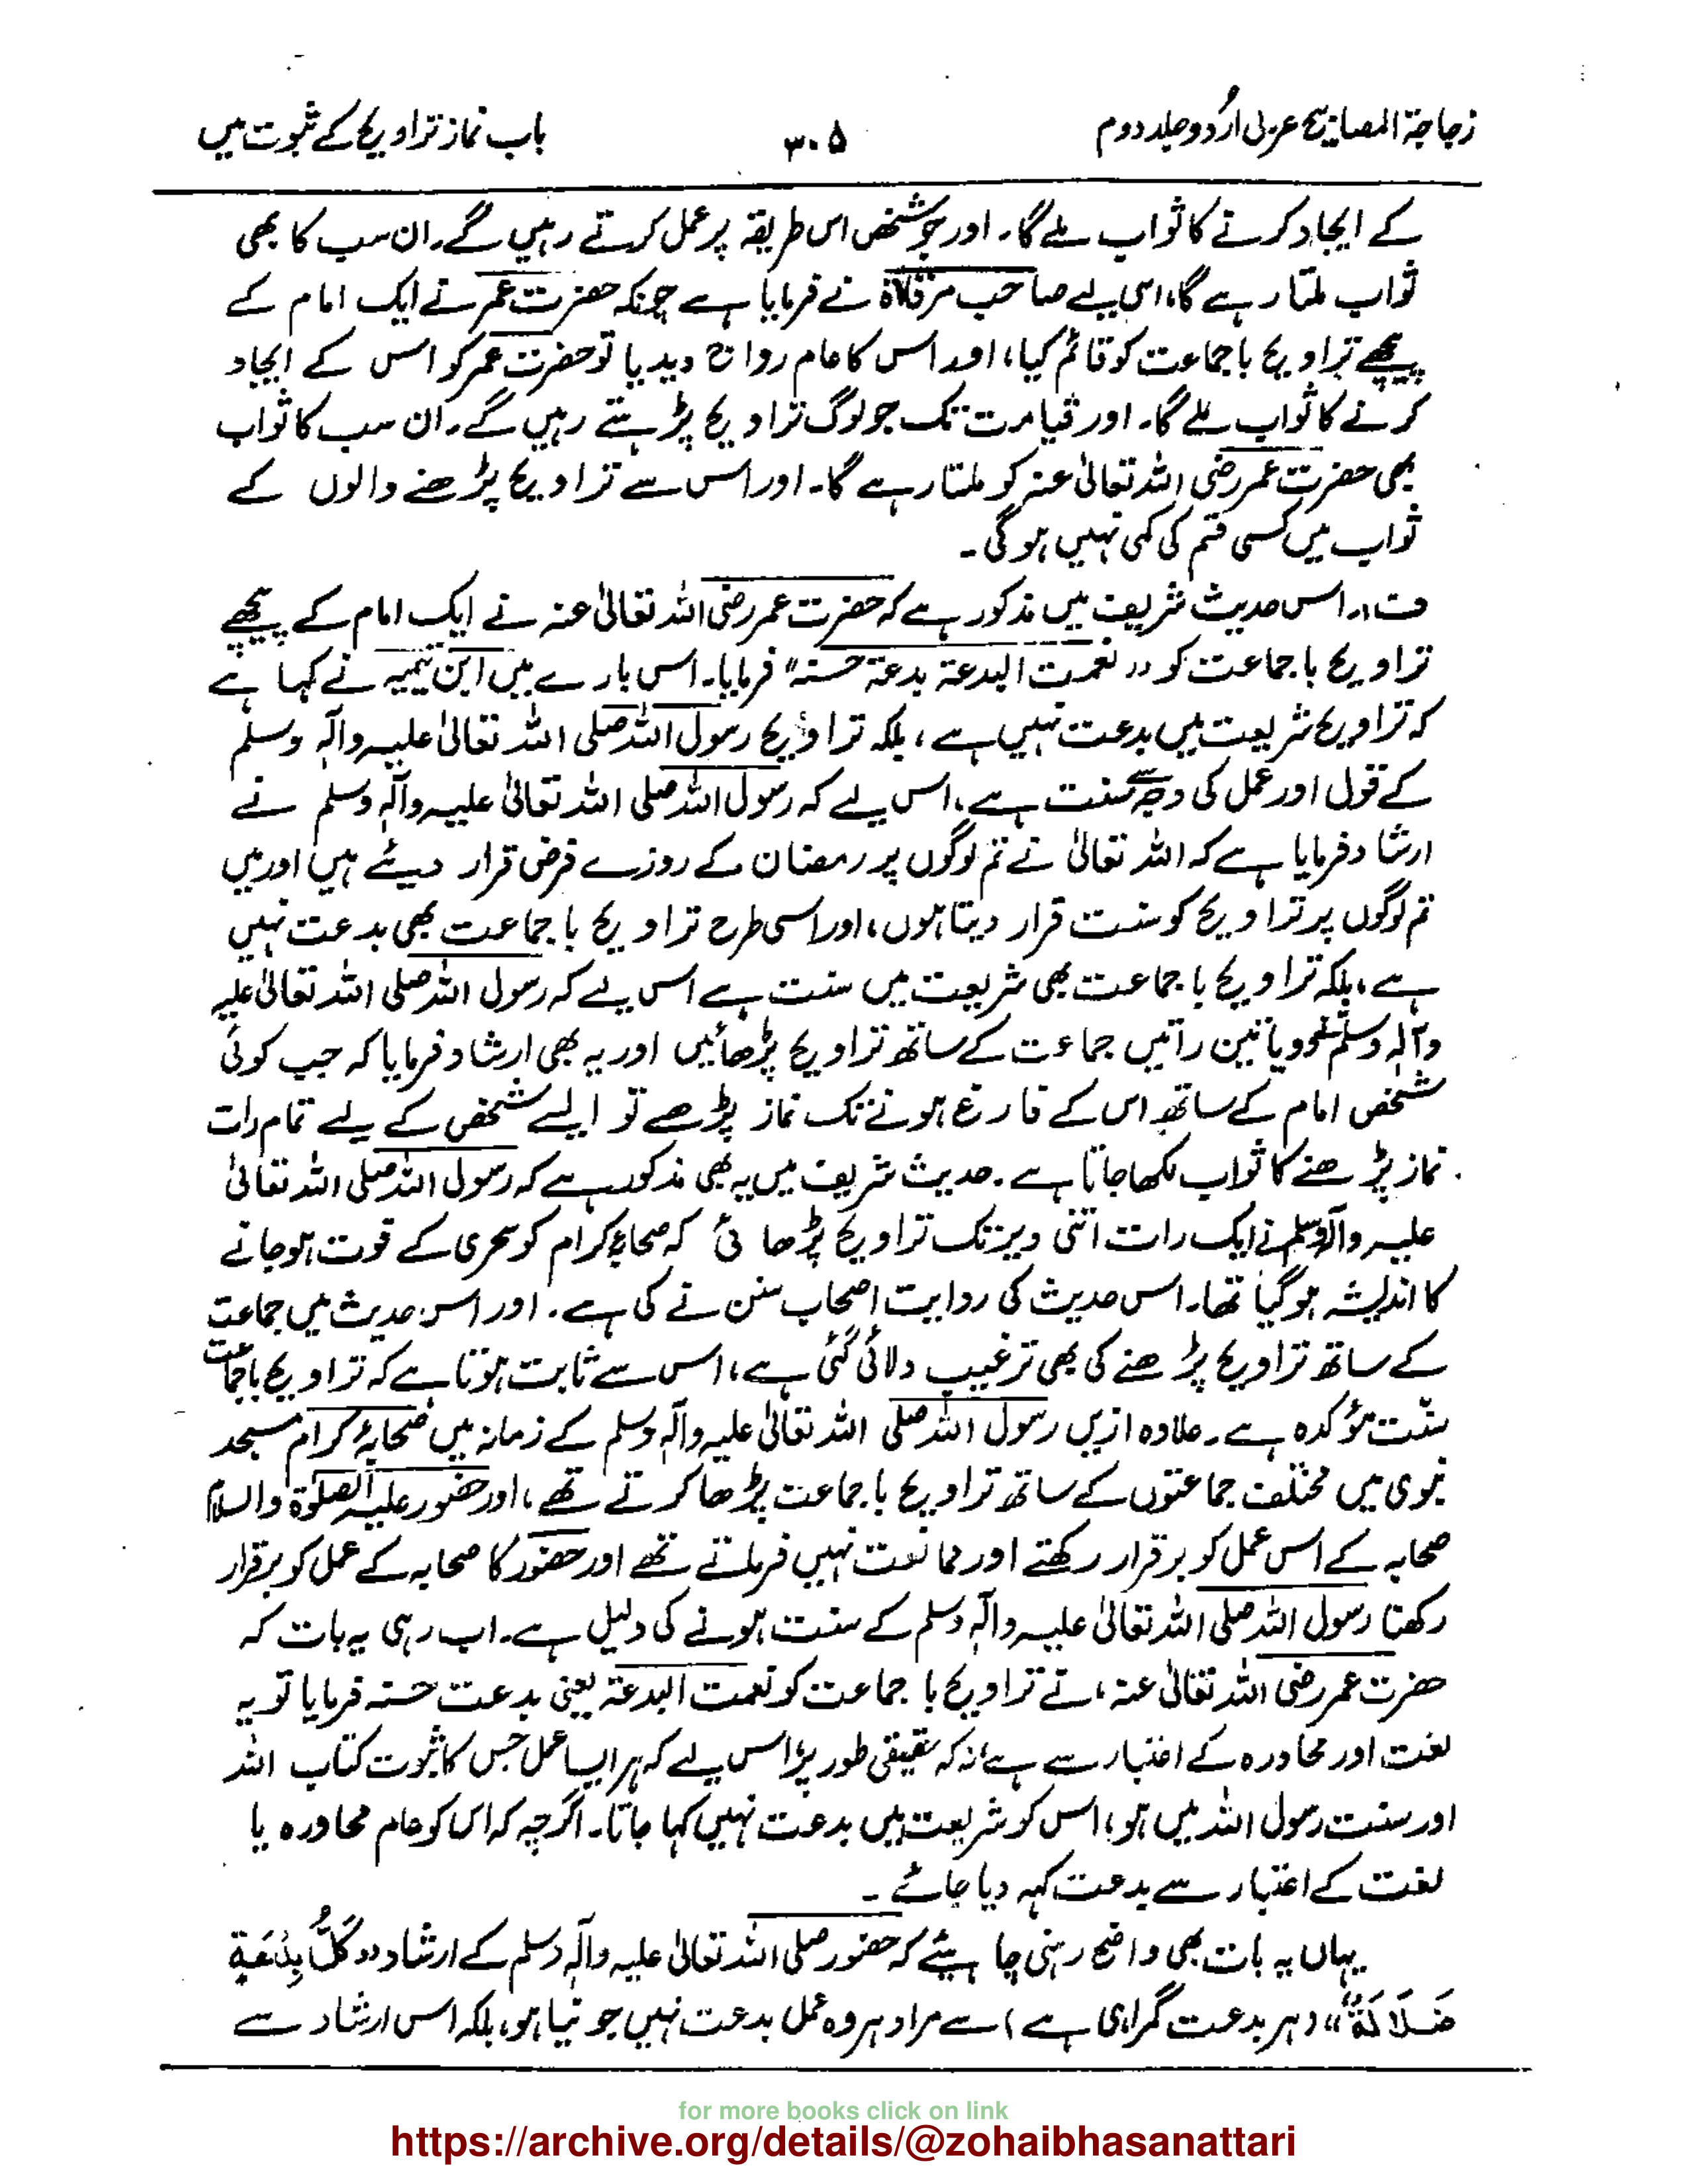 زجاجۃ المصابیح عربی اُردو جلد دوم
۳۰۵
باب نماز تراویح کے ثبوت میں
کے ایجاد کرنے کا ثواب ملے گا۔ اور جو شخص اس طریقہ پر عمل کرتے رہیں گے۔ ان سب کا بھی
ثواب ملتا رہے گا، اسی لیے صاحب مرقاۃ نے فرمایا ہے چونکہ حضرت عمر نے ایک امام کے
پیچھے تراویح باجماعت کو قائم کیا، اور اس کا عام رواج دیدیا تو حضرت عمر کو اس کے ایجاد
کرنے کا ثواب ملے گا۔ اور قیامت تک جو لوگ تراویح پڑہتے رہیں گے۔ ان سب کا ثواب
بھی حضرت عمر رضی اللہ تعالیٰ عنہ کو ملتا رہے گا۔ اور اس سے تراویح پڑھنے والوں کے
ثواب میں کسی قسم کی کمی نہیں ہوگی۔
ف:۔ اس حدیث شریف میں مذکور ہے کہ حضرت عمر رضی اللہ تعالیٰ عنہ نے ایک امام کے پیچھے
تراویح باجماعت کو ’’نعمت البدعۃ بدعۃ حسنہ‘‘ فرمایا۔ اس بارے میں ابن تیمیہ نے کہا ہے
کہ تراویح شریعت میں بدعت نہیں ہے، بلکہ تراویح رسول اللہ صلی اللہ تعالیٰ علیہ وآلہٖ وسلم
کے قول اور عمل کی وجہ سے سنت ہے، اس لیے کہ رسول اللہ صلی اللہ تعالیٰ علیہ وآلہٖ وسلم نے
ارشاد فرمایا ہے کہ اللہ تعالیٰ نے تم لوگوں پر رمضان کے روزے فرض قرار دیئے ہیں اور میں
تم لوگوں پر تراویح کو سنت قرار دیتا ہوں، اور اسی طرح تراویح باجماعت بھی بدعت نہیں
ہے، بلکہ تراویح باجماعت بھی شریعت میں سنت ہے اس لیے کہ رسول اللہ صلی اللہ تعالیٰ علیہ
وآلہٖ وسلم نے دو یا تین راتیں جماعت کے ساتھ تراویح پڑھائیں اور یہ بھی ارشاد فرمایا کہ جب کوئی
شخص امام کے ساتھ اس کے فارغ ہونے تک نماز پڑھے تو ایسے شخص کے لیے تمام رات
نماز پڑھنے کا ثواب لکھا جاتا ہے۔ حدیث شریف میں یہ بھی مذکور ہے کہ رسول اللہ صلی اللہ تعالیٰ
علیہ وآلہٖ وسلم نے ایک رات اتنی دیر تک تراویح پڑھائی کہ صحابۂ کرام کو سحری کے فوت ہوجانے
کا اندیشہ ہوگیا تھا۔ اس حدیث کی روایت اصحاب سنن نے کی ہے۔ اور اس حدیث میں جماعت
کے ساتھ تراویح پڑھنے کی بھی ترغیب دلائی گئی ہے، اس سے ثابت ہوتا ہے کہ تراویح باجماعت
سنّت مؤکدہ ہے۔ علاوہ ازیں رسول اللہ صلی اللہ تعالیٰ علیہ وآلہٖ وسلم کے زمانہ میں صحابۂ کرام مسجد
نبوی میں مختلف جماعتوں کے ساتھ تراویح باجماعت پڑھا کرتے تھے، اور حضور علیہ الصلوٰۃ والسلام
صحابہ کے اس عمل کو برقرار رکھتے اور ممانعت نہیں فرماتے تھے اور حضور کا صحابہ کے عمل کو برقرار
رکھنا رسول اللہ صلی اللہ تعالیٰ علیہ وآلہٖ وسلم کے سنت ہونے کی دلیل ہے۔ اب رہی یہ بات کہ
حضرت عمر رضی اللہ تعالیٰ عنہ، نے تراویح باجماعت کو نعمت البدعۃ یعنی بدعت حسنہ فرمایا تو یہ
لغت اور محاورہ کے اعتبار سے ہے نہ کہ حقیقی طور پر، اس لیے کہ ہر ایسا عمل جس کا ثبوت کتاب اللہ
اور سنت رسول اللہ میں ہو، اس کو شریعت میں بدعت نہیں کہا جاتا۔ اگرچہ کہ اس کو عام محاورہ یا
لغت کے اعتبار سے بدعت کہہ دیا جائے۔
یہاں یہ بات بھی واضح رہنی چاہیئے کہ حضور صلی اللہ تعالیٰ علیہ وآلہٖ وسلم کے ارشاد ’’کُلُّ بِدْعَۃٍ
ضَلَالَۃٌ‘‘ (ہر بدعت گمراہی ہے) سے مراد ہر وہ عمل بدعت نہیں جو نیا ہو، بلکہ اس ارشاد سے
for more books click on link
https://archive.org/details/@zohaibhasanattari